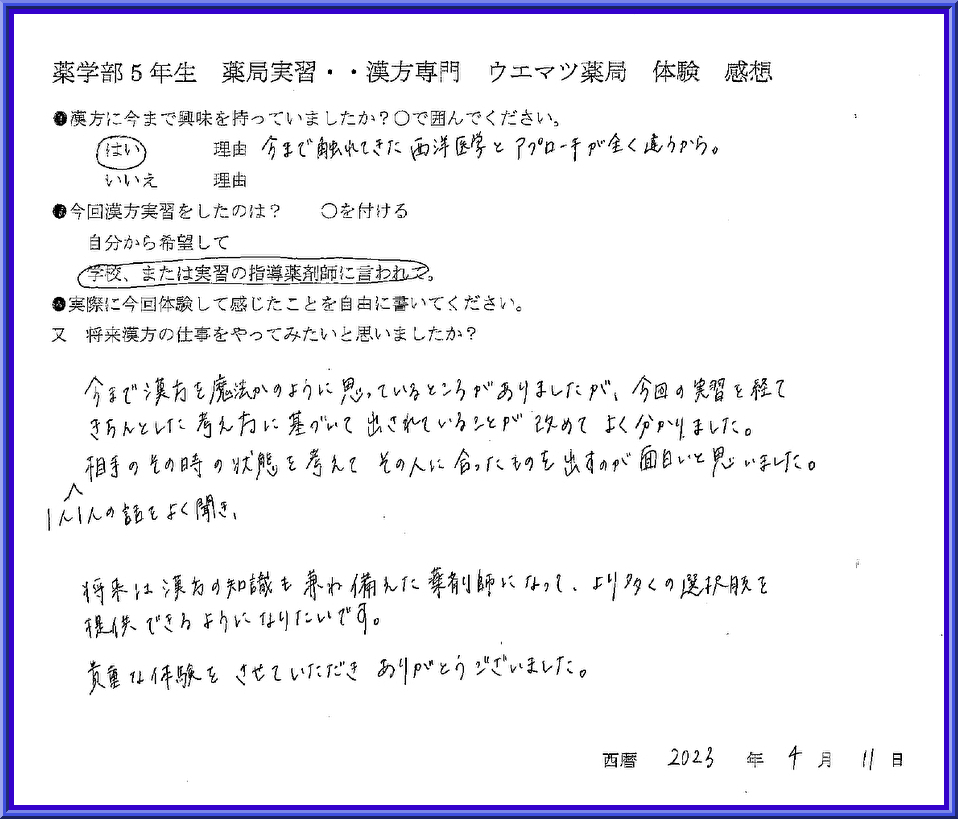 薬学部5年生　薬局実習・・漢方専門　ウエマツ薬局　体験　感想
●漢方に今まで興味を持っていましたか？○で囲んでください。
はい　理由　今まで触れてきた西洋医学とアプローチが全く違うから。
いいえ　理由
●今回漢方実習をしたのは？　○を付ける
自分から希望して
学校、または実習の指導薬剤師に言われて。
●実際に今回体験して感じたことを自由に書いてください。
又　将来漢方の仕事をやってみたいと思いましたか？
今まで漢方を魔法かのように思っているところがありましたが、今回の実習を経て
きちんとした考え方に基づいて出されていることが改めてよく分かりました。
相手のその時の状態を考えてその人に合ったものを出すのが面白いと思いました。
1人1人の話をよく聞き、
将来は漢方の知識も兼ね備えた薬剤師になって、より多くの選択肢を
提供できるようになりたいです。
貴重な体験をさせていただきありがとうございました。
西暦　2023　年　4　月　11　日